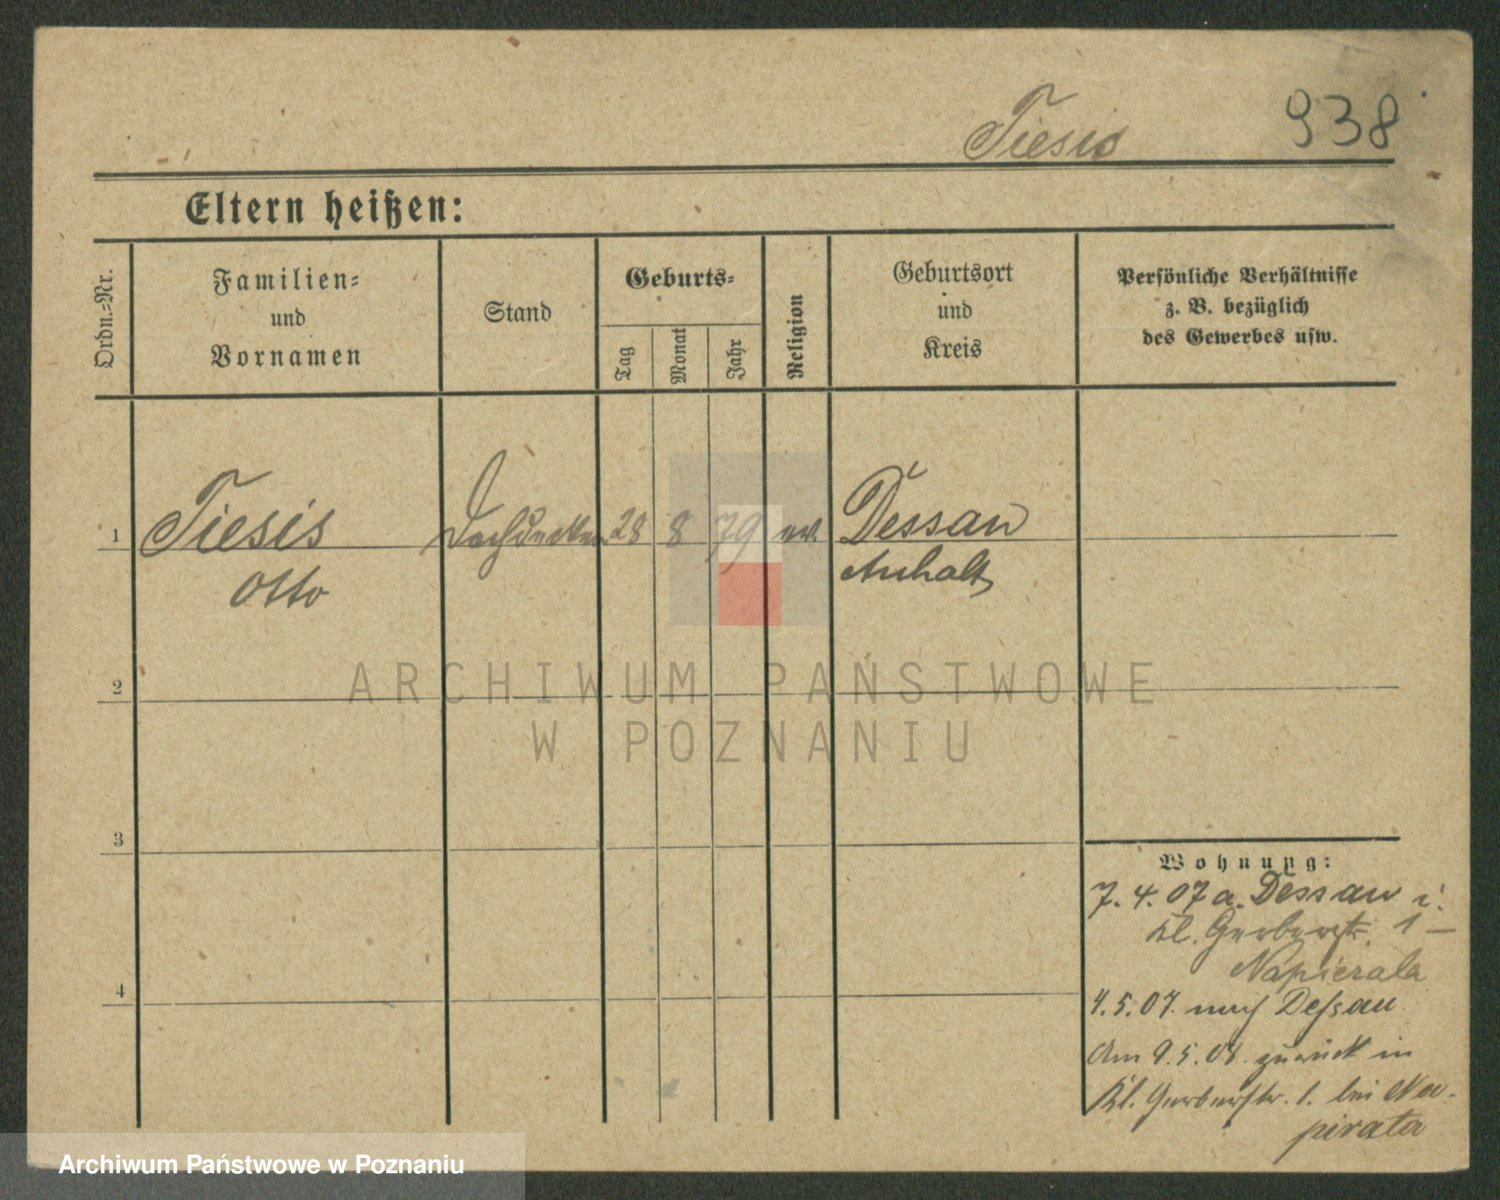 Tiesis 938
Eltern heißen:
Ordn.-Nr.
Familien-
und
Vornamen
Stand
Geburts-
Tag
Monat
Jahr
Religion
Geburtsort
und
Kreis
Persönliche Verhältnisse
z. B. bezüglich
des Gewerbes usw.
1 Tiesis Dachdecker 28 8 79 ev. Dessau
Otto Anhalt
2
ARCHIWUM PAŃSTWOWE
W POZNANIU
3
Wohnung:
7. 4. 07 a. Dessau i.
Kl. Gerberstr. 1 —
Napierala
4
4. 5. 07. nach Dessau.
Am 9. 5. zurück in
Kl. Gerberstr. 1. bei Na-
pirala
Archiwum Państwowe w Poznaniu